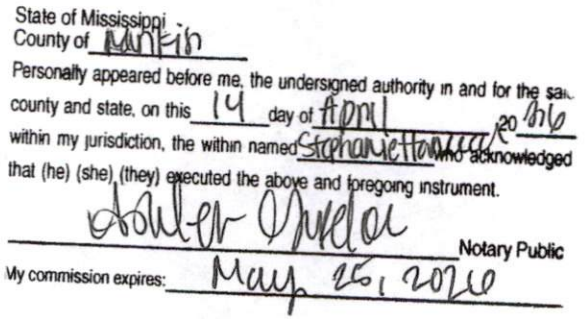 State of Mississippi
County of Rankin
Personally appeared before me, the undersigned authority in and for the
county and state, on this 14 day of April, 20
within my jurisdiction, the within named Stephanie who acknowledged
that (he) (she) (they) executed the above and foregoing instrument.
Notary Public
My commission expires: May 25, 2026